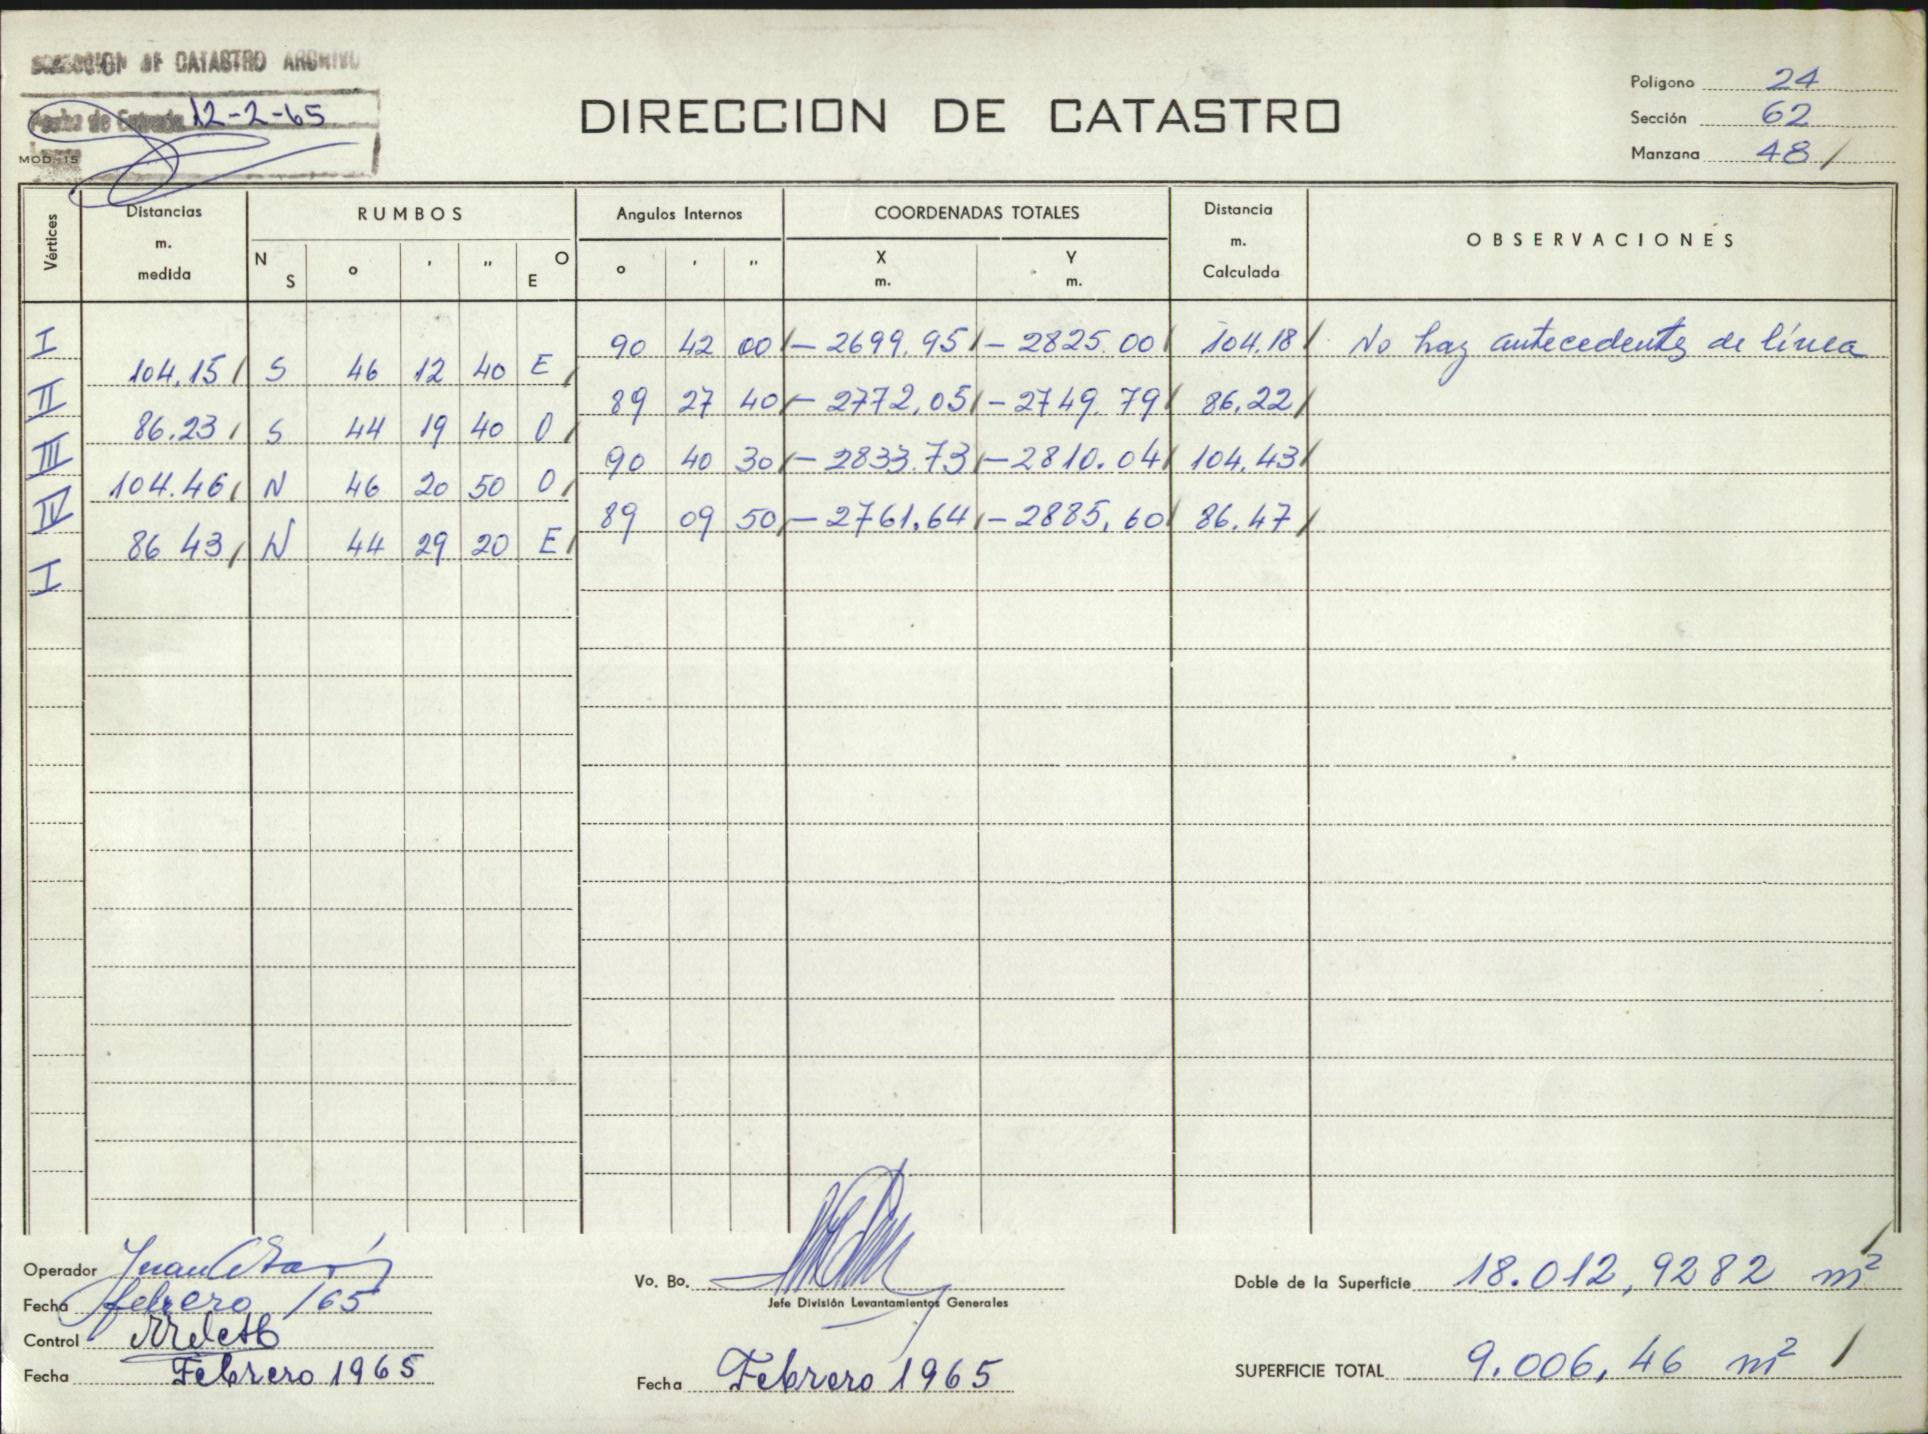 DIRECCION DE CATASTRO ARCHIVO
Fecha de Entrada 12-2-65
MOD. 15
DIRECCION DE CATASTRO
Polígono 24
Sección 62
Manzana 48
Vértices
Distancias m. medida
RUMBOS
N S ° ' " O E
Angulos Internos
° ' "
COORDENADAS TOTALES
X m. Y m.
Distancia m. Calculada
OBSERVACIONES
I 90 42 00 - 2699.95 - 2825.00 104.18 No hay antecedentes de línea
104.15 S 46 12 40 E
II 89 27 40 - 2772,05 - 2749.79 86.22
86.23 S 44 19 40 O
III 90 40 30 - 2833.73 - 2810.04 104.43
104.46 N 46 20 50 O
IV 89 09 50 - 2761,64 - 2885,60 86.47
86 43 N 44 29 20 E
I
Operador Juan
Fecha febrero /65
Control
Fecha Febrero 1965
Vo. Bo.
Jefe División Levantamientos Generales
Fecha Febrero 1965
Doble de la Superficie 18.012,9282 m²
SUPERFICIE TOTAL 9.006,46 m²